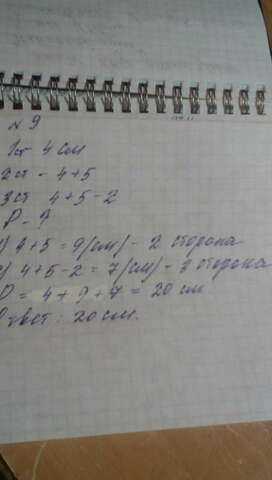 № 9
1ст 4 см
2ст - 4+5
3ст 4+5-2
P - ?
1) 4+5 = 9(см) - 2 сторона
2) 4+5-2 = 7(см) - 3 сторона
P = 4+9+7 = 20 см
Ответ: 20 см.